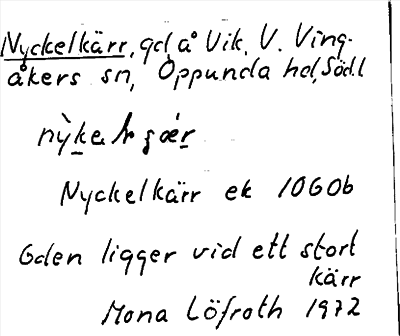 Nyckelkärr, gd å Vik, V. Ving-
åkers sn, Oppunda hd, Södl
Nyckelkärr ek 10G0b
Gden ligger vid ett stort
kärr
Mona Löfroth 1972